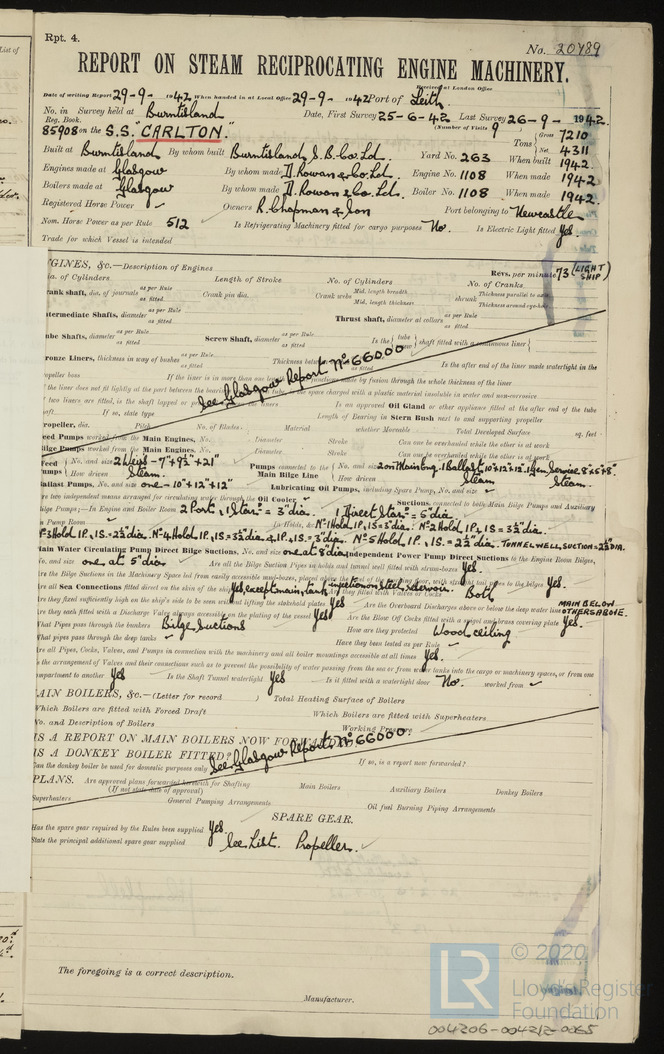 Rpt. 4.
No. 20489
REPORT ON STEAM RECIPROCATING ENGINE MACHINERY.
Received at London Office
Date of writing Report 29-9-1942 When handed in at Local Office 29-9-1942 Port of Leith.
No. in Survey held at Burntisland Date, First Survey 25-6-42 Last Survey 26-9-1942
Reg. Book. (Number of Visits 9
85908 on the S.S. "CARLTON." Tons Gross 7210 Net 4311
Built at Burntisland By whom built Burntisland S.B.Co.Ld. Yard No. 263 When built 1942
Engines made at Glasgow By whom made D. Rowan & Co. Ld. Engine No. 1108 When made 1942
Boilers made at Glasgow By whom made D. Rowan & Co. Ld. Boiler No. 1108 When made 1942.
Registered Horse Power Owners R. Chapman & Son Port belonging to Newcastle
Nom. Horse Power as per Rule 512 Is Refrigerating Machinery fitted for cargo purposes No. Is Electric Light fitted Yes.
Trade for which Vessel is intended
GINES, &c.—Description of Engines Revs. per minute 73 (LIGHT SHIP)
ia. of Cylinders Length of Stroke No. of Cylinders No. of Cranks
rank shaft, dia. of journals as per Rule as fitted Crank pin dia. Crank webs Mid. length breadth Mid. length thickness shrunk Thickness parallel to axis Thickness around eye-hole
termediate Shafts, diameter as per Rule as fitted Thrust shaft, diameter at collars as per Rule as fitted
ube Shafts, diameter as per Rule as fitted Screw Shaft, diameter as per Rule as fitted Is the tube screw shaft fitted with a continuous liner
ronze Liners, thickness in way of bushes as per Rule as fitted Thickness between as fitted Is the after end of the liner made watertight in the
See Glasgow Report No. 66000
opeller boss If the liner is in more than one length made by fusion through the whole thickness of the liner
the liner does not fit tightly at the part between the the space charged with a plastic material insoluble in water and non-corrosive
two liners are fitted, is the shaft lapped or liners Is an approved Oil Gland or other appliance fitted at the after end of the tube
haft. If so, state type Length of Bearing in Stern Bush next to and supporting propeller
ropeller, dia. Pitch No. of Blades Material whether Moveable Total Developed Surface sq. feet
eed Pumps worked from the Main Engines, No. Diameter Stroke Can one be overhauled while the other is at work
ilge Pumps worked from the Main Engines, No. Diameter Stroke Can one be overhauled while the other is at work
eed umps No. and size 2 Weirs - 7"+9½"+21" How driven Steam Pumps connected to the Main Bilge Line No. and size 2 on Main Eng. 1 Ballast 10"+12"+12". 1 Gen. Service 8"+6"+8" How driven Steam Steam.
allast Pumps, No. and size one - 10"+12"+12" Lubricating Oil Pumps, including Spare Pump, No. and size
re two independent means arranged for circulating water through the Oil Cooler Suctions, connected to both Main Bilge Pumps and Auxiliary
ilge Pumps;—In Engine and Boiler Room 2 Port, 1 Star = 3" dia. 1 direct Star = 5" dia.
n Pump Room In Holds, &c. No.1 Hold 1P, 1S = 3" dia. No.2 Hold 1P, 1S = 3½" dia.
No.3 Hold 1P. 1S = 2½" dia. No.4 Hold 1P. 1S = 3½" dia & 1P, 1S = 3" dia. No.5 Hold 1P. 1S = 2½" dia. TUNNEL WELL, SUCTION = 2½" DIA.
ain Water Circulating Pump Direct Bilge Suctions, No. and size one at 8" dia. Independent Power Pump Direct Suctions to the Engine Room Bilges,
o. and size one at 5" dia. Are all the Bilge Suction Pipes in holds and tunnel well fitted with strum-boxes Yes.
re the Bilge Suctions in the Machinery Space led from easily accessible mud-boxes, placed above the level of the with straight tail pipes to the bilges Yes.
re all Sea Connections fitted direct on the skin of the ship Yes, except main injection on steel reservoir. Are they fitted with Valves or Cocks Both
re they fixed sufficiently high on the ship's side to be seen without lifting the stokehold plates Yes Are the Overboard Discharges above or below the deep water line MAIN BELOW OTHERS ABOVE.
re they each fitted with a Discharge Valve always accessible on the plating of the vessel Yes Are the Blow Off Cocks fitted with a spigot and brass covering plate Yes.
hat Pipes pass through the bunkers Bilge Suctions How are they protected Wood ceiling
hat pipes pass through the deep tanks Have they been tested as per Rule
re all Pipes, Cocks, Valves, and Pumps in connection with the machinery and all boiler mountings accessible at all times Yes.
s the arrangement of Valves and their connections such as to prevent the possibility of water passing from the sea or from tanks into the cargo or machinery spaces, or from one
mpartment to another Yes Is the Shaft Tunnel watertight Yes Is it fitted with a watertight door No. worked from
AIN BOILERS, &c.—(Letter for record ) Total Heating Surface of Boilers
hich Boilers are fitted with Forced Draft Which Boilers are fitted with Superheaters
o. and Description of Boilers Working Pressure
IS A REPORT ON MAIN BOILERS NOW FORWARDED?
IS A DONKEY BOILER FITTED? See Glasgow Report No. 66000 If so, is a report now forwarded?
Can the donkey boiler be used for domestic purposes only
PLANS. Are approved plans forwarded herewith for Shafting Main Boilers Auxiliary Boilers Donkey Boilers
(If not state date of approval)
Superheaters General Pumping Arrangements Oil fuel Burning Piping Arrangements
SPARE GEAR.
Has the spare gear required by the Rules been supplied Yes.
State the principal additional spare gear supplied See List. Propeller.
The foregoing is a correct description.
Manufacturer.
LR
© 2020
Lloyd's Register
Foundation
004206-004212-0065